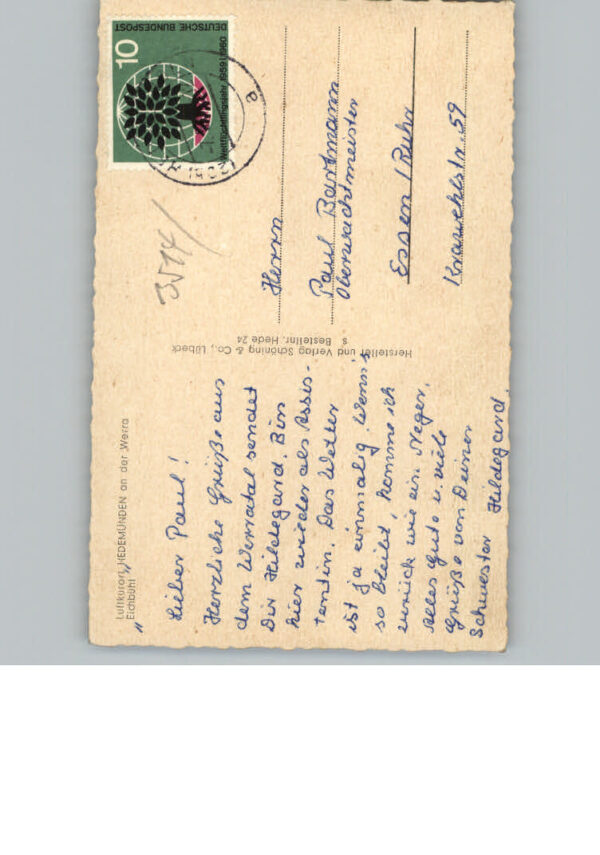 Luftkurort HEDEMÜNDEN an der Werra
„Eichbühl"
Lieber Paul!
Herzliche Grüße aus
dem Werratal sendet
Dir Hildegard. Bin
hier wieder als Assis-
tentin. Das Wetter
ist ja einmalig. Wenn's
so bleibt, komme ich
zurück wie ein Neger.
Alles Gute u. viele
Grüße von Deiner
Schwester Hildegard.
Hersteller und Verlag Schöning & Co., Lübeck
s Bestellnr. Hede 24
3514/
DEUTSCHE BUNDESPOST
10
Weltflüchtlingsjahr 1959/1960
Herrn
Paul Bartmann
Oberwachtmeister
Essen/Ruhr
Krawehlstr. 59